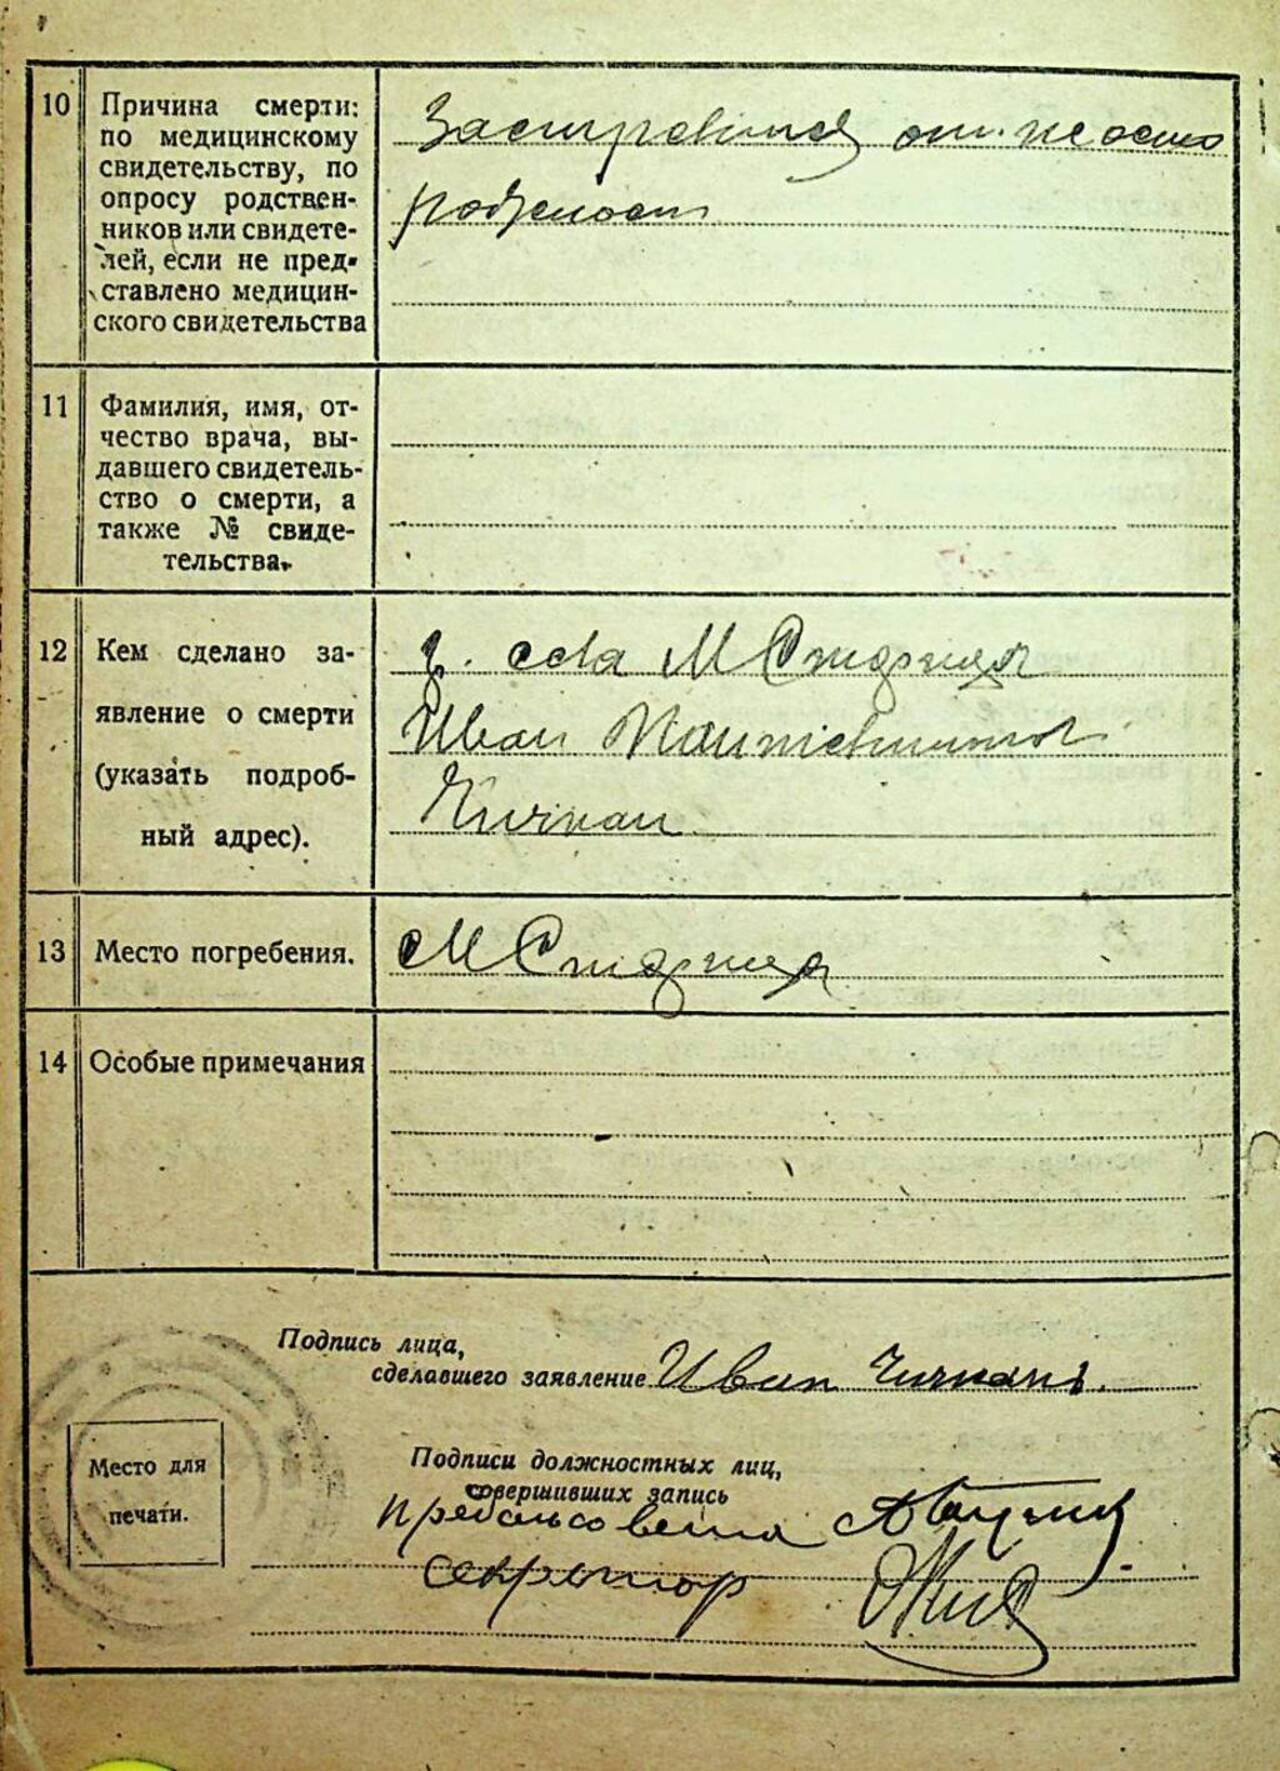 10 Причина смерти:
по медицинскому
свидетельству, по
опросу родствен-
ников или свидете-
лей, если не пред-
ставлено медицин-
ского свидетельства
Застревился от неосто
рожност
11 Фамилия, имя, от-
чество врача, вы-
давшего свидетель-
ство о смерти, а
также № свиде-
тельства.
12 Кем сделано за-
явление о смерти
(указать подроб-
ный адрес).
села М
Иван
Чичкан
13 Место погребения.
14 Особые примечания
Подпись лица,
сделавшего заявление Иван Чичкань.
Место для
печати.
Подписи должностных лиц,
совершивших запись
Предсельсовета
Секретар